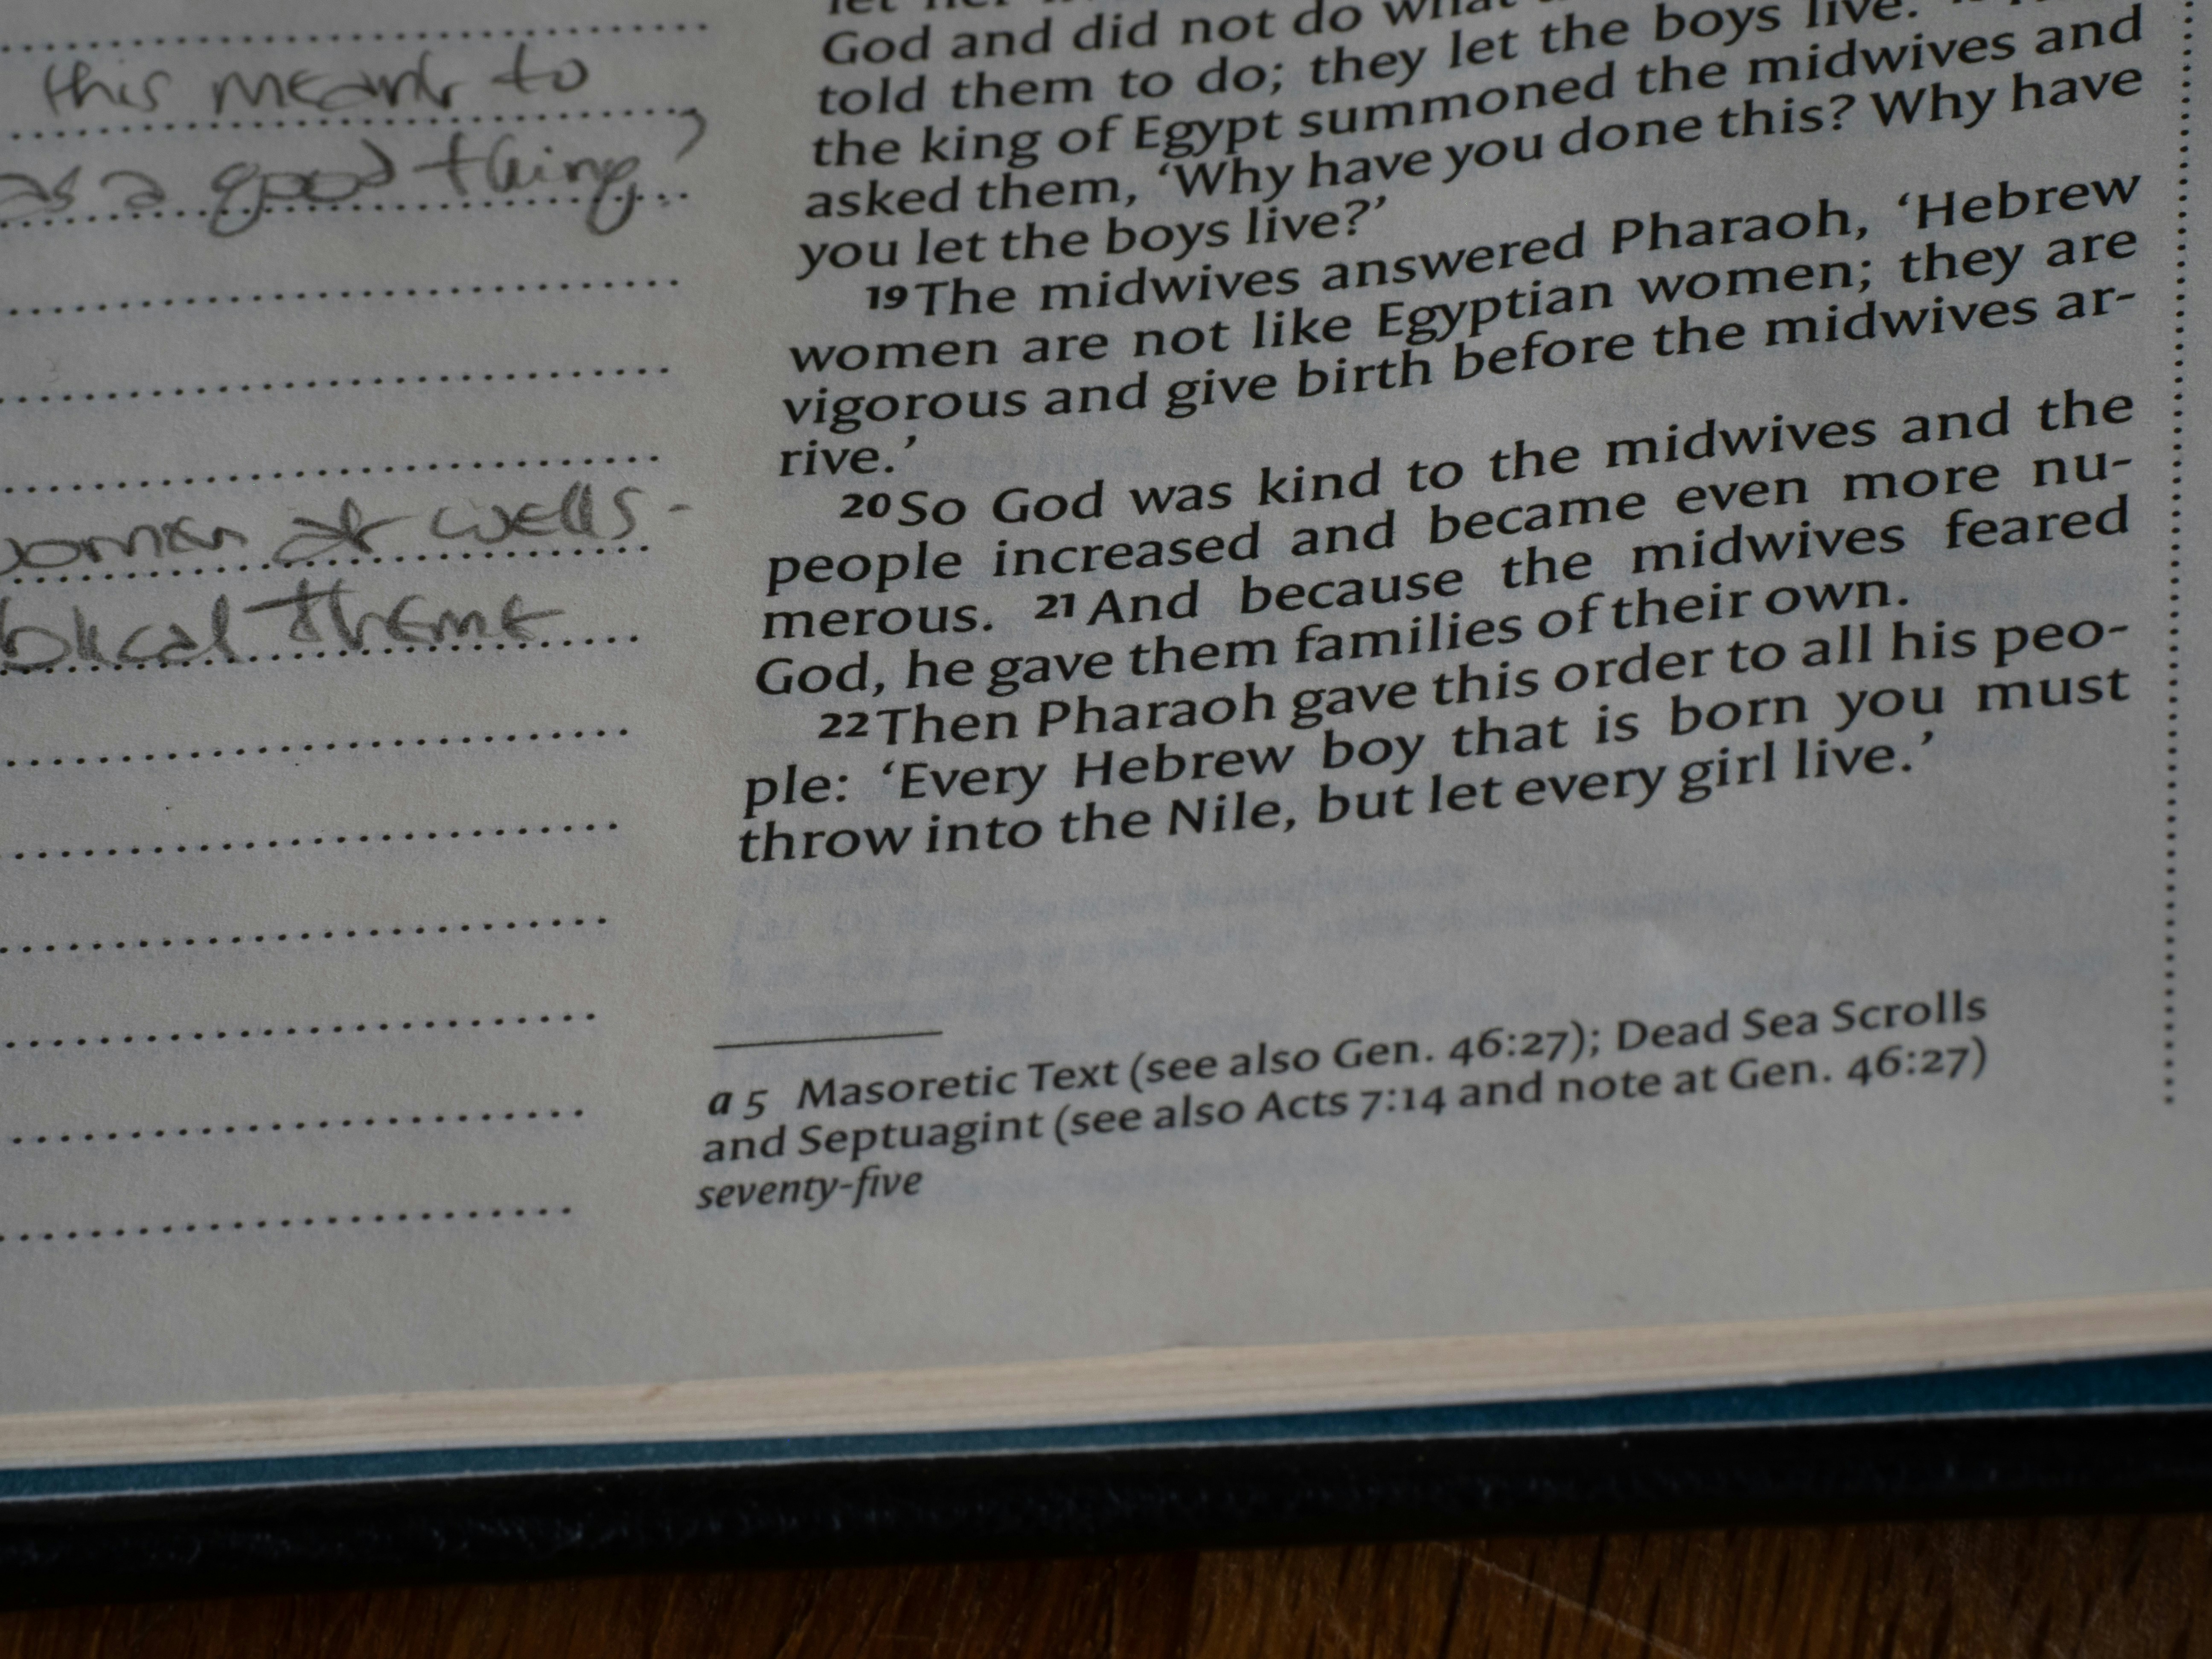 this meant to
as a good thing?
women at wells -
blical theme
let her
God and did not do what
told them to do; they let the boys live.
the king of Egypt summoned the midwives and
asked them, ‘Why have you done this? Why have
you let the boys live?’
19 The midwives answered Pharaoh, ‘Hebrew
women are not like Egyptian women; they are
vigorous and give birth before the midwives ar-
rive.’
20 So God was kind to the midwives and the
people increased and became even more nu-
merous. 21 And because the midwives feared
God, he gave them families of their own.
22 Then Pharaoh gave this order to all his peo-
ple: ‘Every Hebrew boy that is born you must
throw into the Nile, but let every girl live.’
a 5 Masoretic Text (see also Gen. 46:27); Dead Sea Scrolls
and Septuagint (see also Acts 7:14 and note at Gen. 46:27)
seventy-five